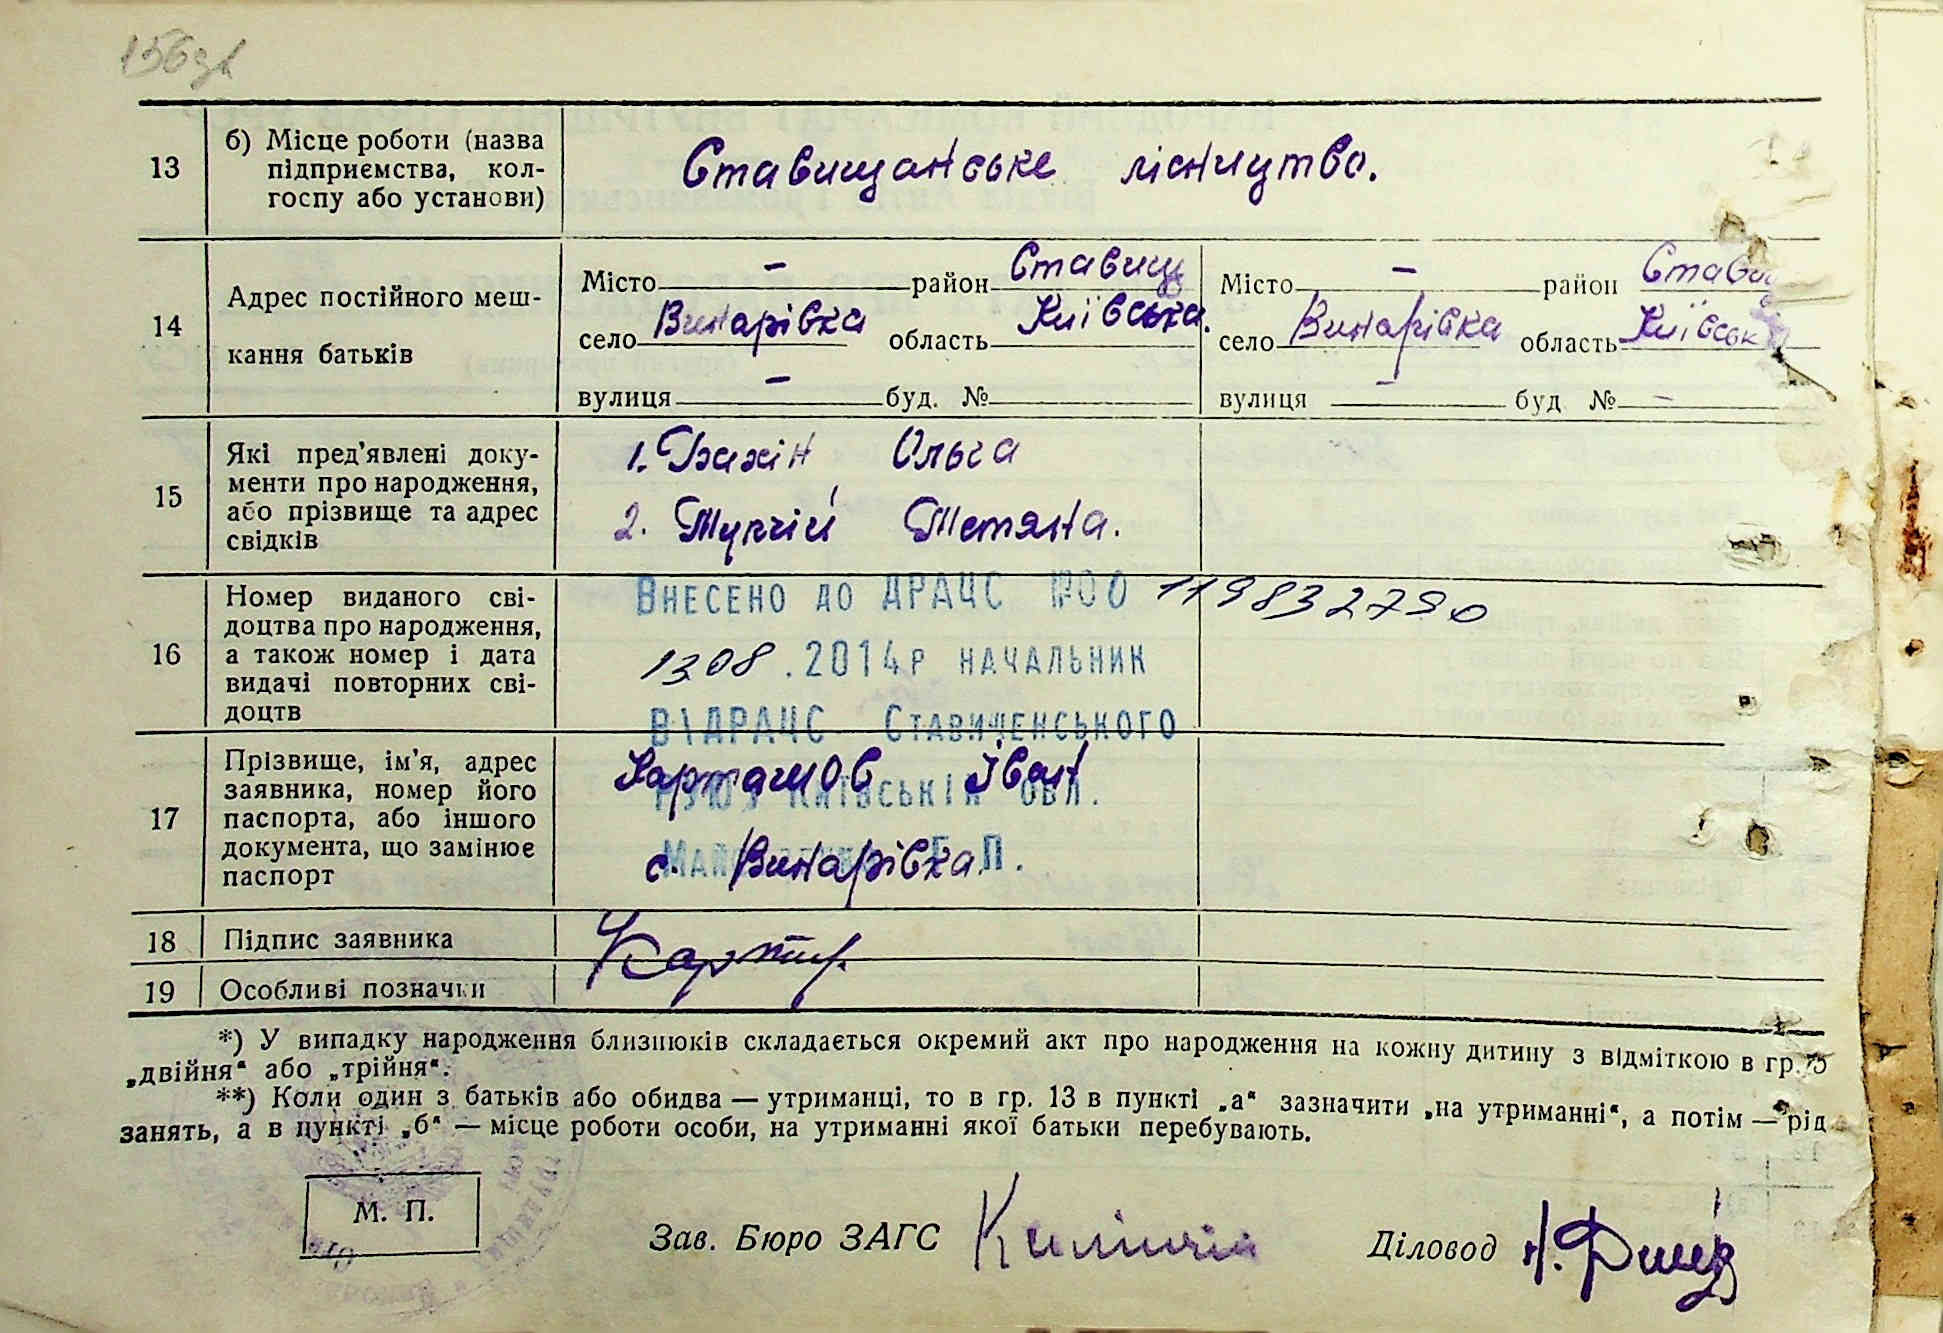 156зв
13 б) Місце роботи (назва
підприємства, кол-
госпу або установи)
Ставищанське лісництво.
14 Адрес постійного меш-
кання батьків
Місто — район Ставищ
село Винарівка область Київська.
вулиця — буд. №
Місто — район Стави
село Винарівка область Київськ
вулиця — буд №—
15 Які пред'явлені доку-
менти про народження,
або прізвище та адрес
свідків
1. Ольга
2. Тетяна.
16 Номер виданого сві-
доцтва про народження,
а також номер і дата
видачі повторних сві-
доцтв
Внесено до ДРАЦС №00 119832790
13 08 .2014р начальник
ВДРАЦС Ставищенського
Київській обл.
П.
17 Прізвище, ім'я, адрес
заявника, номер його
паспорта, або іншого
документа, що замінює
паспорт
Карташов Іван
с. Винарівка.
18 Підпис заявника
19 Особливі позначки
*) У випадку народження близнюків складається окремий акт про народження на кожну дитину з відміткою в гр.
„двійня“ або „трійня“.
**) Коли один з батьків або обидва — утриманці, то в гр. 13 в пункті „а“ зазначити „на утриманні“, а потім — рід
занять, а в пункті „б“ — місце роботи особи, на утриманні якої батьки перебувають.
М. П.
Зав. Бюро ЗАГС
Діловод